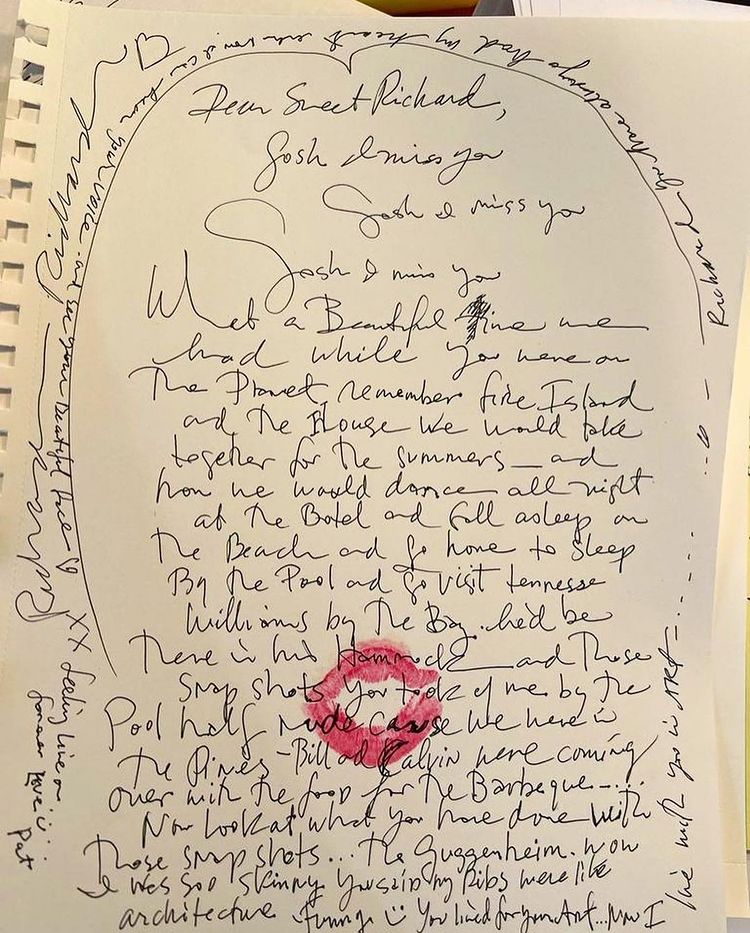 Dear Sweet Richard,
Gosh I miss you
Gosh I miss you
Gosh I miss you
What a Beautiful Time we
had while you were on
The Planet, remember fire Island
and the House we would take
together for the summers — and
how we would dance all night
at the Botel and fall asleep on
the Beach and Go home to sleep
By the Pool and Go visit tennesse
Williams by the Bay. he'd be
There in his Hammock — and Those
snap shots you took of me by the
Pool half nude cause we were in
the Pines - Bill and Calvin were coming
over with the food for the Barbeque —...
Now Look at what you have done with
Those snap shots... The Guggenheim. wow
I was soo skinny you said my Ribs were like
architecture funny :) You lived for your Art... Now I
live with you in ART — .....
Richard you have always had my heart even now I can hear your voice and see your beautiful face
XX feeling live on
forever love :) ...
Pat